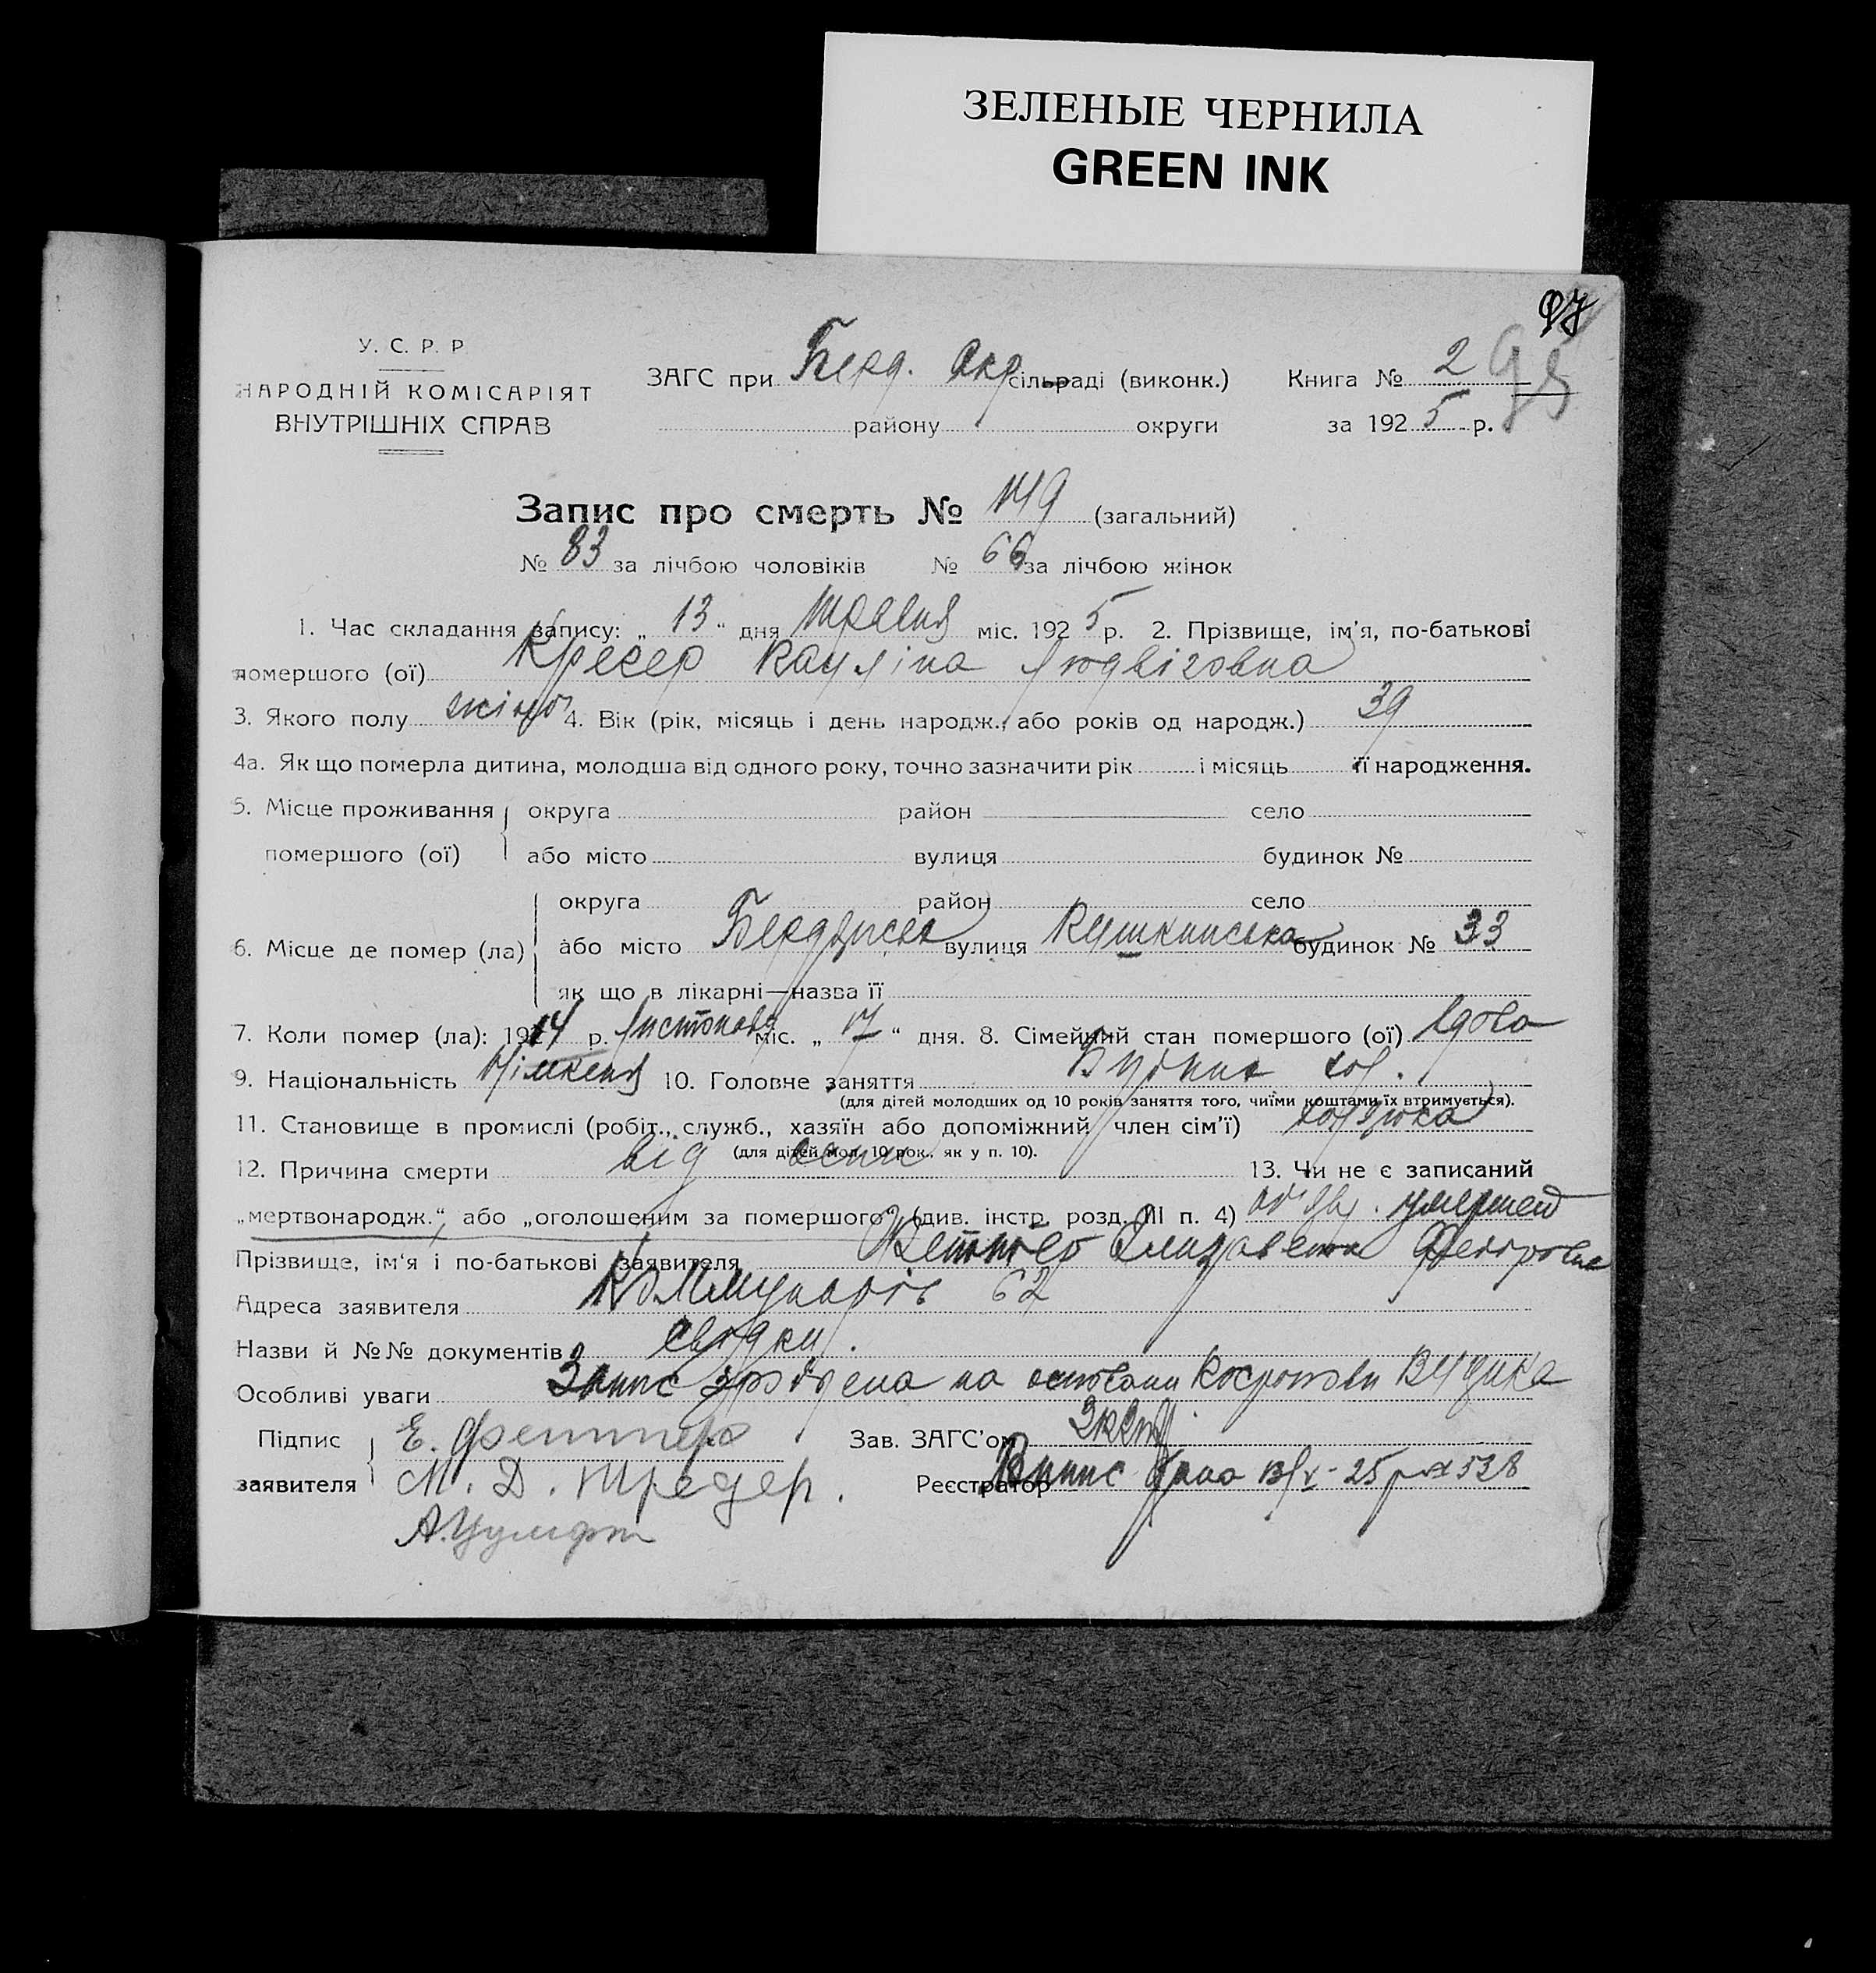 ЗЕЛЕНЫЕ ЧЕРНИЛА
GREEN INK
97
У. С. Р. Р
НАРОДНІЙ КОМІСАРІЯТ
ВНУТРІШНІХ СПРАВ
ЗАГС при Берд. Окр сільраді (виконк.)
району округи
Книга № 2
за 1925 р.
Запис про смерть № 149 (загальний)
№ 83 за лічбою чоловіків № 66 за лічбою жінок
1. Час складання запису: „ 13 “ дня травня міс. 1925 р. 2. Прізвище, ім'я, по-батькові
помершого (ої) Кресер Кауліна Людвіговна
3. Якого полу жіноч 4. Вік (рік, місяць і день народж., або років од народж.) 39
4а. Як що померла дитина, молодша від одного року, точно зазначити рік і місяць її народження.
5. Місце проживання округа район село
помершого (ої) або місто вулиця будинок №
округа район село
6. Місце де помер (ла) або місто Бердянськ вулиця Пушкинська будинок № 33
як що в лікарні—назва її
7. Коли помер (ла): 1914 р. Листопаду міс. „ 17 “ дня. 8. Сімейний стан помершого (ої) Вдова
9. Національність Німкеня 10. Головне заняття
(для дітей молодших од 10 років заняття того, чиїми коштами їх втримується).
11. Становище в промислі (робіт., служб., хазяїн або допоміжний член сім'ї)
(для дітей мол. 10 рок., як у п. 10).
12. Причина смерти від 13. Чи не є записаний
„мертвонародж.“, або „оголошеним за помершого“ (див. інстр. розд. III п. 4)
Прізвище, ім'я і по-батькові заявителя Елизавета Федоровна
Адреса заявителя Коммунарів 62
Назви й №№ документів свідки.
Особливі уваги Запис зроблена на основани
Підпис Е. Феттер Зав. ЗАГС'ом
заявителя М. Д. Тредер. Реєстратор Випис дана 13/V-25 р № 528